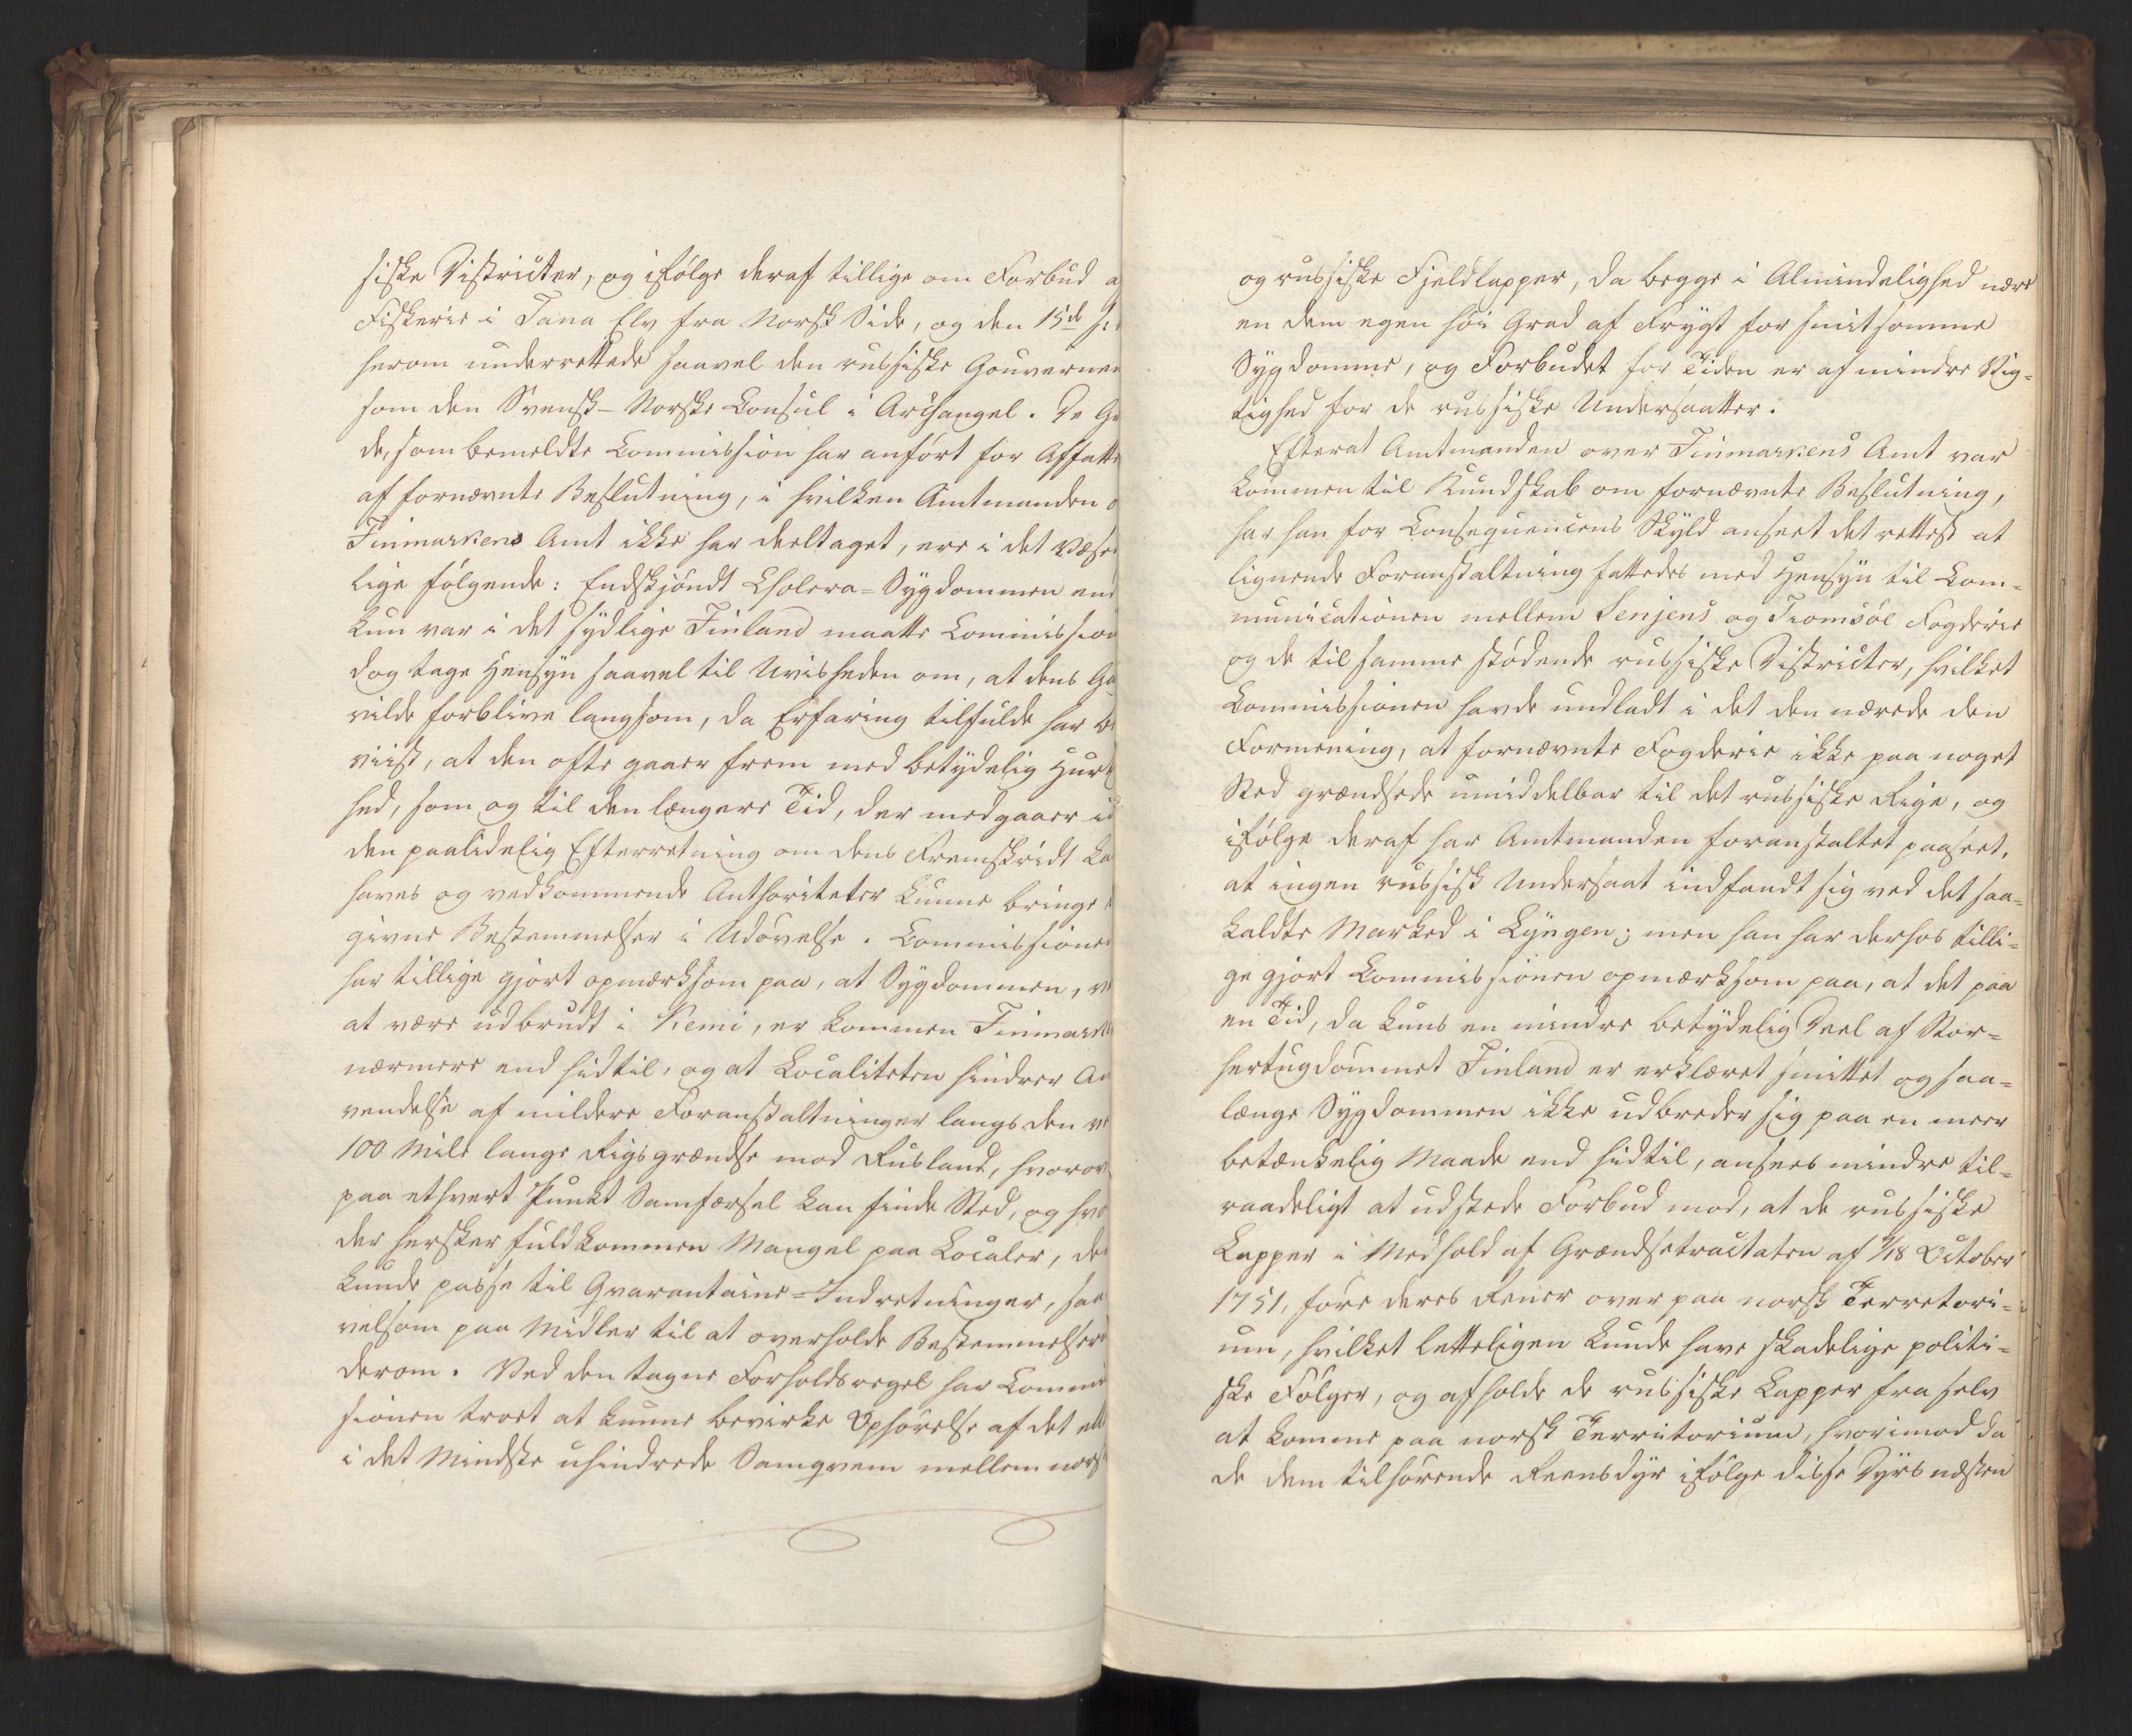 siske Districter, og ifølge deraf tillige om Forbud a
Fiskerie i Tana Elv fra Norsk Side, og den 15de s:
herom underrettede saavel den russiske Gouverneu
som den Svensk-Norske Consul i Archangel. De Gr
de, som bemeldte Commission har anført for Affatte
af fornævnte Beslutning, i hvilken Amtmanden o
Finmarkens Amt ikke har deeltaget, ere i det væse
lige følgende: Endskjøndt Cholera-Sygdommen end
kun var i det sydlige Finland maatte Commission
dog tage Hensyn saavel til Uvisheden om, at dens Ga
vilde forblive langsom, da Erfaring tilfulde har be
viist, at den ofte gaaer frem med betydelig Hurt
hed, som og til den længere Tid, der medgaaer in
den paalidelig Efterretning om dens Fremskridt ka
haves og vedkommende Authoriteter kunne bringe
givne Bestemmelser i Udøvelse. Commissionen
har tillige gjort opmærksom paa, at Sygdommen, ve
at være udbrudt i Kemi, er kommen Finmark
nærmere end hidtil, og at Localiteten hindrer An
vendelse af mildere Foranstaltninger langs den ve
100 Mile lange Rigsgrændse mod Rusland, hvorov
paa ethvert Punkt Samfærsel kan finde Sted, og hvo
der hersker fuldkommen Mangel paa Localer, de
kunde passe til Qvarantaine-Indretninger, saa
velsom paa Midler til at overholde Bestemmelsern
derom. Ved den tagne Forholdsregel har Commi
sionen troet at kunne bevirke Ophørelse af det ell
i det Mindste uhindrede Samqvem mellem nors
og russiske Fjeldlapper, da begge i Almindelighed nære
en dem egen høi Grad af Frygt for smitsomme
Sygdomme, og Forbudet for Tiden er af mindre Vig-
tighed for de russiske Undersaatter.
Efterat Amtmanden over Finmarkens Amt var
kommen til Kundskab om fornævnte Beslutning,
har han for Consequencens Skyld anseet det rettest at
lignende Foranstaltning fattedes med Hensyn til Com-
municationen mellem Senjens og Tromsøe Fogderie
og de til samme stødende russiske Districter, hvilket
Commissionen havde undladt i det den nærede den
Formening, at fornævnte Fogderie ikke paa noget
Sted grændsede umiddelbar til det russiske Rige, og
ifølge deraf har Amtmanden foranstaltet paaseet,
at ingen russisk Undersaat indfandt sig ved det saa-
kaldte Marked i Lyngen; men han har derhos tilli-
ge gjort Commissionen opmærksom paa, at det paa
en Tid, da kuns en mindre betydelig Deel af Stor-
hertugdømmet Finland er erklæret smittet og saa-
længe Sygdommen ikke udbreder sig paa en meer
betænkelig Maade end hidtil, ansees mindre til-
raadeligt at udstede Forbud mod, at de russiske
Lapper i Medhold af Grændsetractaten af 7/18 October
1751, føre deres Rener over paa norsk Terretori-
um, hvilket letteligen kunde have skadelige politi-
ske Følger, og afholde de russiske Lapper fra selv
at komme paa norsk Territorium, hvorimod da
de dem tilhørende Reensdyr ifølge disse Dyrs næsten